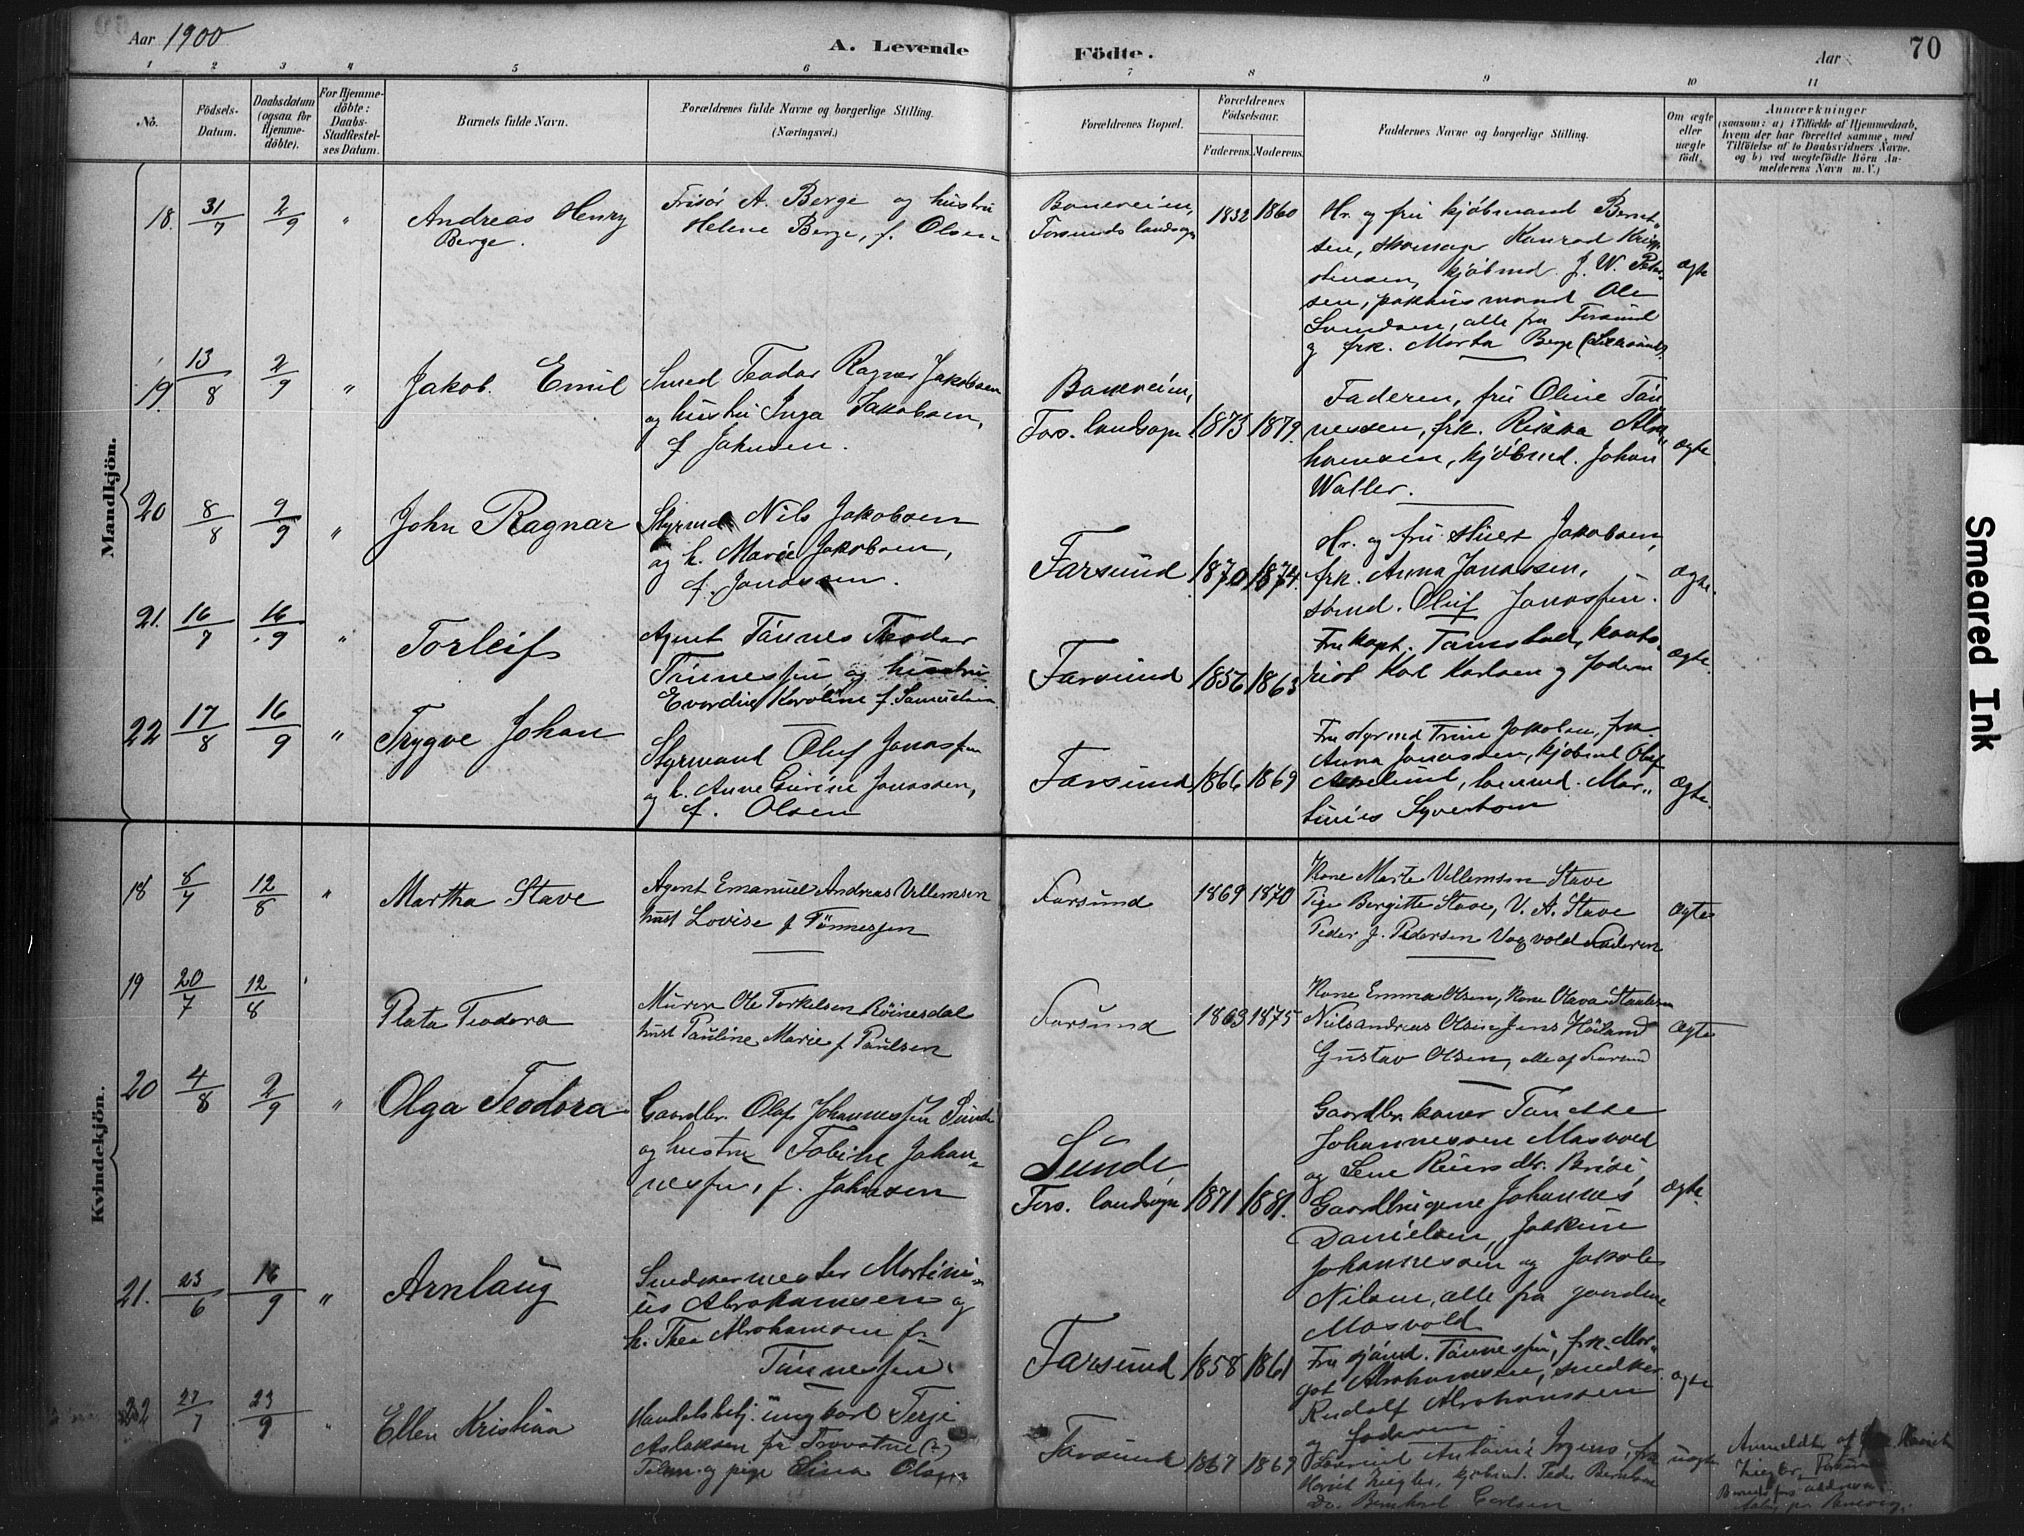 Aar 1900
A. Levende Födte.
Aar
70
1 2 3 4 5 6 7 8 9 10 11
No.
Födsels-
Datum.
Daabsdatum
(ogsaa for
Hjemme-
döbte).
For Hjemme-
döbte:
Daabs-
Stadfæstel-
ses Datum.
Barnets fulde Navn.
Forældrenes fulde Navne og borgerlige Stilling.
(Næringsvei.)
Forældrenes Bopæl.
Forældrenes
Födselsaar.
Faderens. Moderens.
Faddernes Navne og borgerlige Stilling.
Om ægte
eller
uægte
født.
Anmærkninger
(saasom: a) i Tilfælde af Hjemmedaab,
hvem der har forrettet samme, med
Tilföielse af to Daabsvidners Navne.
og b) ved uægtefödte Börn An-
melderens Navn m.V.)
Mandkjön.
18. 31/7 2/9 "
Andreas Henry
Berge.
Frisör A. Berge og hustru
Helene Berge, f. Olsen
Farsunds landsogn
1832 1860
Hr. og fru kjøbmand Bernt-
sen, skomager Konrad Kri-
stensen, kjøbmd. J. W. Peter-
sen, pakhusmand Ole
Svendsen, alle fra Farsund
og frk. Marta Berge
ægte
19. 13/8 2/9 "
Jakob Emil
Smed Teodor Ragnar Jakobsen
og hustru Inga Jakobsen,
f. Jahnsen.
Fars. landsogn
1873 1879.
Faderen, fru Oline Tön-
nessen, frk. Rikka Abra-
hamsen, kjøbmd. Johan
Waller.
ægte.
20 8/8 9/9 "
John Ragnar
Styrmd. Nils Jakobsen
og h. Marie Jakobsen,
f. Jonassen.
Farsund
1870 1874.
Hr. og fru Jakobsen,
frk. Anna Jonassen,
sömd. Oluf Jonassen.
ægte.
21. 16/7 16/9 "
Torleif
Agent Tönnes Teodor
Tönnessen og hustru
Evardine Karoline f. Samuelsen
Farsund
1856 1863
Fru kapt. Tamstad, kont-
rist Karl Karlsen og faderen
ægte.
22 17/8 16/9 "
Trygve Johan
Styrmand Oluf Jonassen
og h. Anne Gurine Jonassen,
f. Olsen
Farsund
1866 1869
Fru styrmd Trine Jakobsen, frk.
Anna Jonassen, kjöbmd Olaf
Mar-
tinius Syvertsen
ægte.
Kvindekjön.
18 8/7 12/8 "
Martha Stave
Agent Emanuel Andreas Villemsen
hust Lovise f Tönnessen
Farsund
1869 1870
Kone Marte Villemsen Stave
Pige Bergitte Stave, V. A. Stave
Peder J. Pedersen Vaqvold Faderen
ægte
19 20/7 12/8 "
Plata Teodora
Murer Ole Torkelsen Röinesdal
hust Pauline Marie f Paulsen
Farsund
1869 1875
Kone Emma Olsen, Kone Olava
Nils Andreas Olsen Jens Höiland
Gustav Olsen, alle af Farsund
ægte
20 4/8 2/9 "
Olga Teodora
Gaardbr. Olaf Johannessen Sunde
og hustru Tobine Johan-
nessen, f. Johnsen
Sunde
Fars. landsogn
1871 1881.
Gaardbr. koner Tanette
Johannessen Mosvold
og Lene
Gaardbrugerne Johannes
Danielsen, Joakim
Johannessen og Jakob
Nilsen, alle fra gaarden
Mosvold
ægte.
21. 23/6 16/9 "
Arnlaug
Snedkermester Martini-
us Abrahamsen og
h. Thea Abrahamsen f.
Tönnessen.
Farsund
1858 1861
Fru sjömd. Tönnessen, frk. Mar-
got Abrahamsen, snedker
Rudolf Abrahamsen
og faderen
ægte
22 27/7 23/9 "
Ellen Kristina
Handelsbetj. ungkarl Terje
Aslaksen fra
og pige Elisa Olsen
Farsund
1867 1869
kjøbmd. Peder Berntsen
Do. Bernhard Carlsen
uægte
Anmeldt af
Smeared Ink